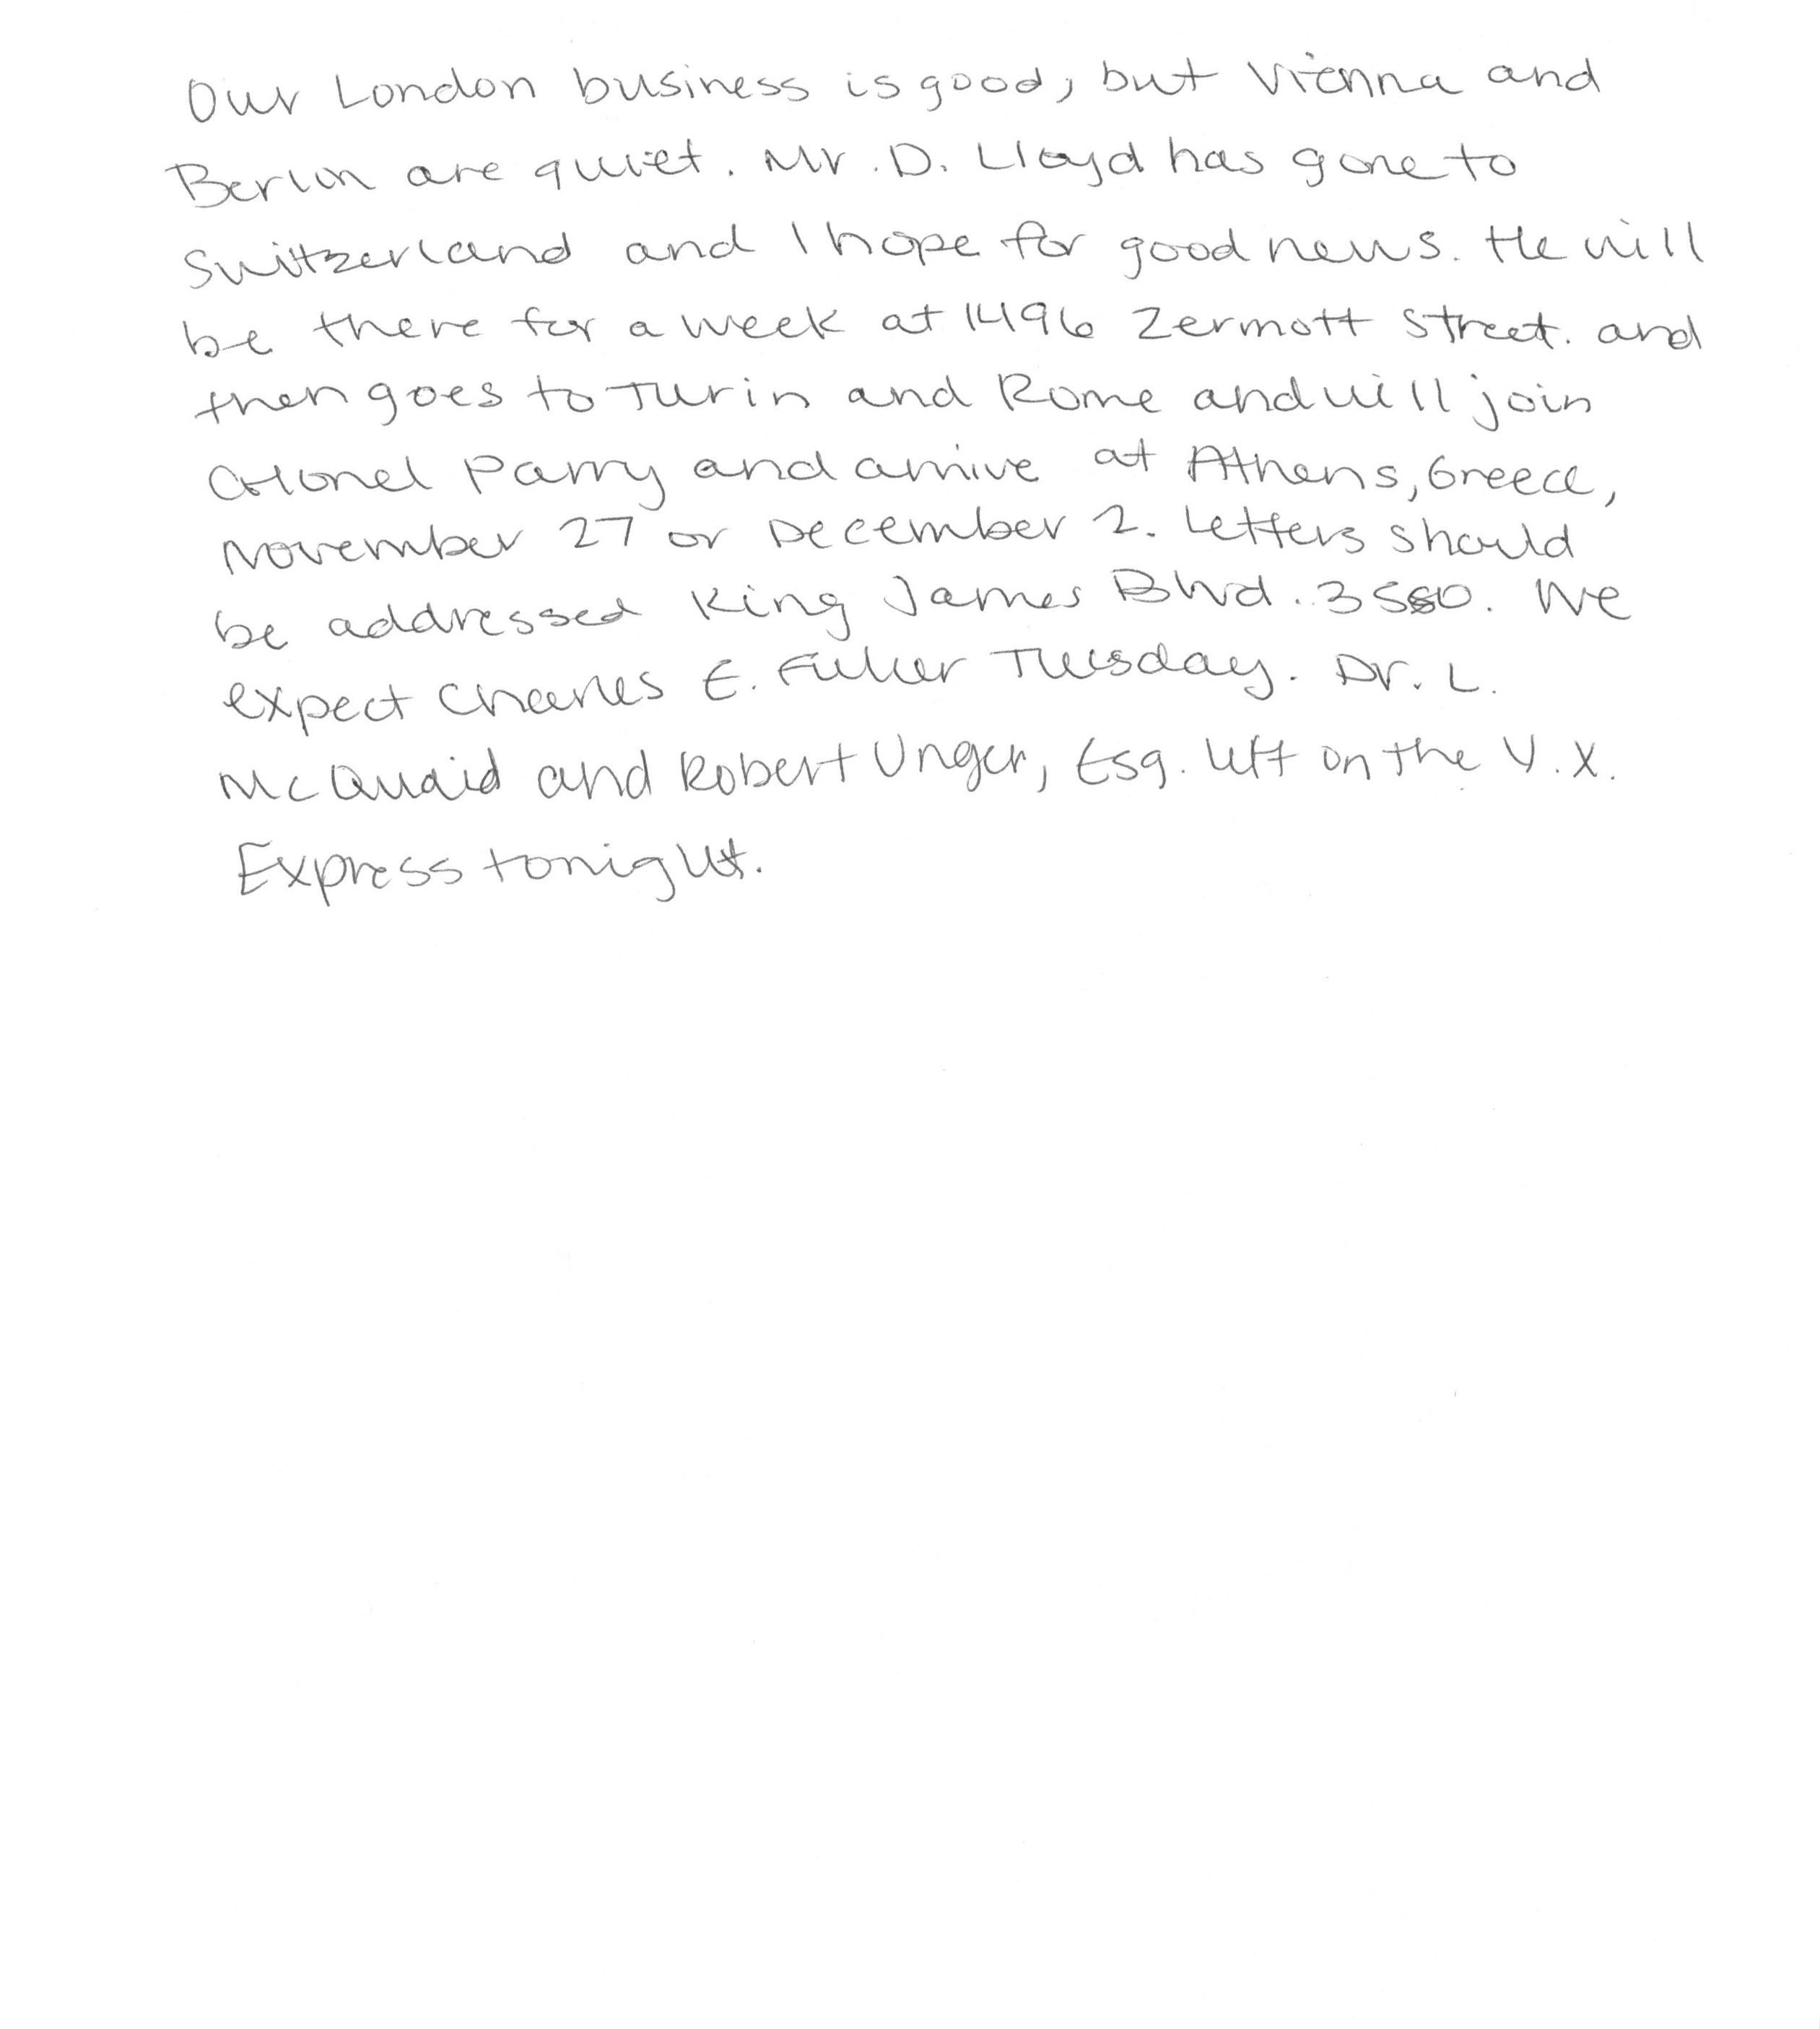 Our London business is good, but Vienna and
Berlin are quiet. Mr. D. Lloyd has gone to
Switzerland and I hope for good news. He will
be there for a week at 1496 Zermott Street. and
then goes to Turin and Rome and will join
Colonel Parry and arrive at Athens, Greece,
November 27 or December 2. Letters should
be addressed King James Blvd. 3580. We
expect Charles E. Fuller Tuesday. Dr. L.
McQuaid and Robert Unger, Esq. left on the Y.X.
Express tonight.